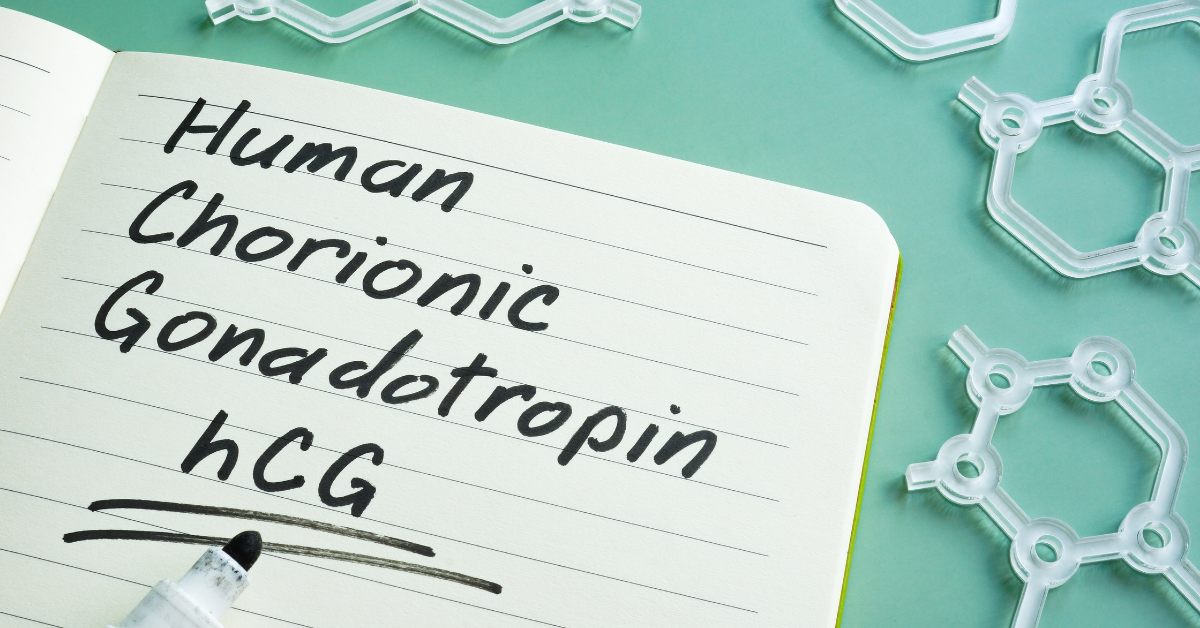 Human
Chorionic
Gonadotropin
hCG